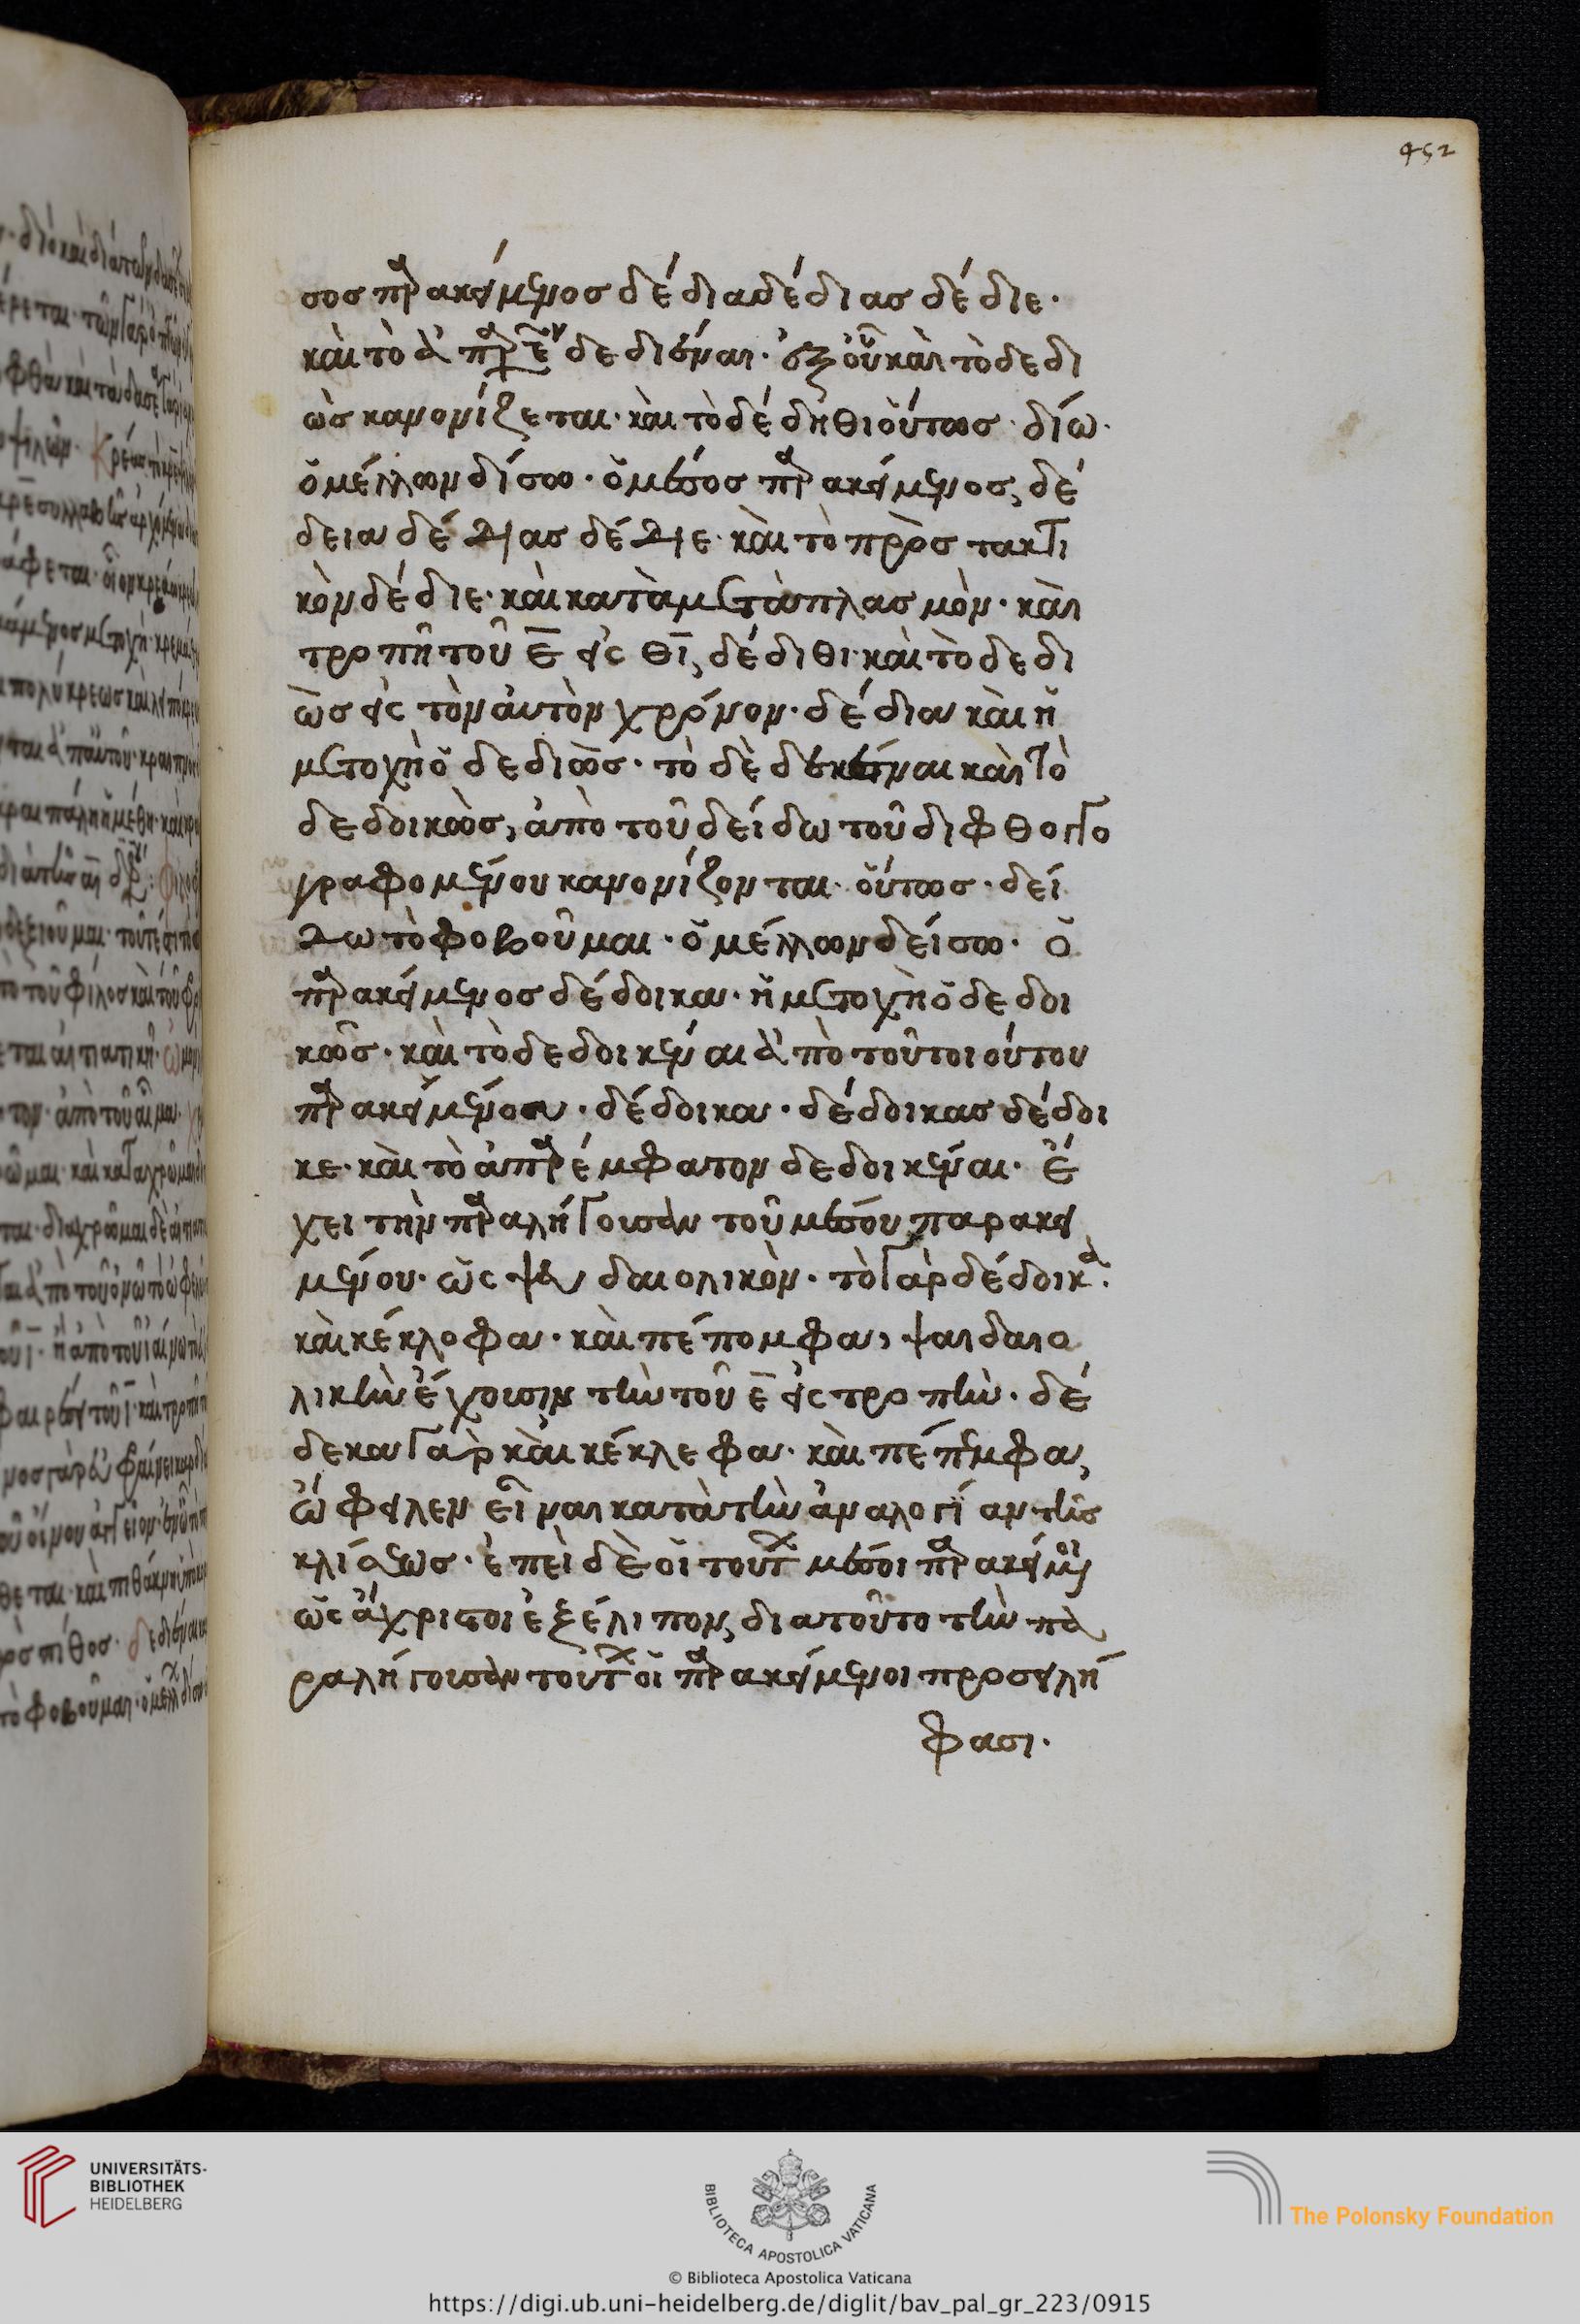 452
σος πρακείμενος δέδια δέδιας δέδιε·
καὶ τὸ δεδιέναι· ἐξ οὗ καὶ τὸ δεδι
ὼς κανονίζεται· καὶ τὸ δέδηθι οὕτως· δίω·
ὁ μέλλων δίσω· ὁ μέσος πρακείμενος, δέ
δεια δέδιας δέδιε· καὶ τὸ προστακτι
κὸν δέδιε· καὶ κατὰ μεταπλασμὸν· καὶ
τροπῆ τοῦ ε̅ εἰς θι̅, δέδιθι· καὶ τὸ δεδι
ὼς εἰς τὸν αὐτὸν χρόνον· δέδια καὶ ἡ
μετοχὴ ὁ δεδιὼς· τὸ δὲ καὶ τὸ
δεδοικὼς, ἀπὸ τοῦ δείδω τοῦ διφθογγο
γραφομένου κανονίζονται· οὕτως· δεί
δω τὸ φοβοῦμαι· ὁ μέλλων δείσω· ὁ
πρακείμενος δέδοικα· ἡ μετοχὴ ὁ δεδοι
κὼς· καὶ τὸ δεδοικέναι ἀπὸ τοῦ τοιούτου
πρακειμένου· δέδοικα· δέδοικας δέδοι
κε· καὶ τὸ ἀπρέμφατον δεδοικέναι· ἔ
χει τὴν πραλήγουσαν τοῦ μέσου παρακει
μένου· ὡς δαιολικὸν· τὸ γὰρ δέδοικα·
καὶ κέκλοφα· καὶ πέπομφα, ψαιδαιο
λικὴν ἔχουσιν τὴν τοῦ ε̅ εἰς τροπὴν· δέ
δεκα γὰρ καὶ κέκλεφα· καὶ πέπεμφα,
ὤφειλεν εἶναι κατὰ τὴν ἀναλογίαν τῆς
κλίσεως· ἐπεὶ δὲ οἱ τούτων μέσοι πρακείμενοι
ὡς ἄχριστοι ἐξέλιπον, διατοῦτο τὴν πα
ραλήγουσαν τούτων οἱ πρακείμενοι προσειλή
φασι·
UNIVERSITÄTS-
BIBLIOTHEK
HEIDELBERG
BIBLIOTECA APOSTOLICA VATICANA
The Polonsky Foundation
© Biblioteca Apostolica Vaticana
https://digi.ub.uni-heidelberg.de/diglit/bav_pal_gr_223/0915